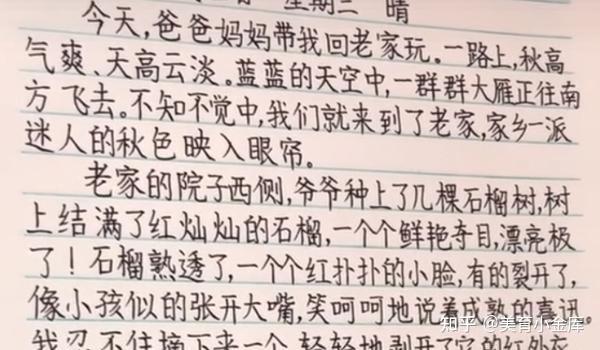 星期三 晴
今天,爸爸妈妈带我回老家玩。一路上,秋高
气爽、天高云淡。蓝蓝的天空中,一群群大雁正往南
方飞去。不知不觉中,我们就来到了老家,家乡一派
迷人的秋色映入眼帘。
老家的院子西侧,爷爷种上了几棵石榴树,树
上结满了红灿灿的石榴,一个个鲜艳夺目,漂亮极
了!石榴熟透了,一个个红扑扑的小脸,有的裂开了,
像小孩似的张开大嘴,笑呵呵地说着成熟的喜讯。
我忍不住摘下来一个,轻轻地剥开了它的红外衣
知乎 @美育小金库